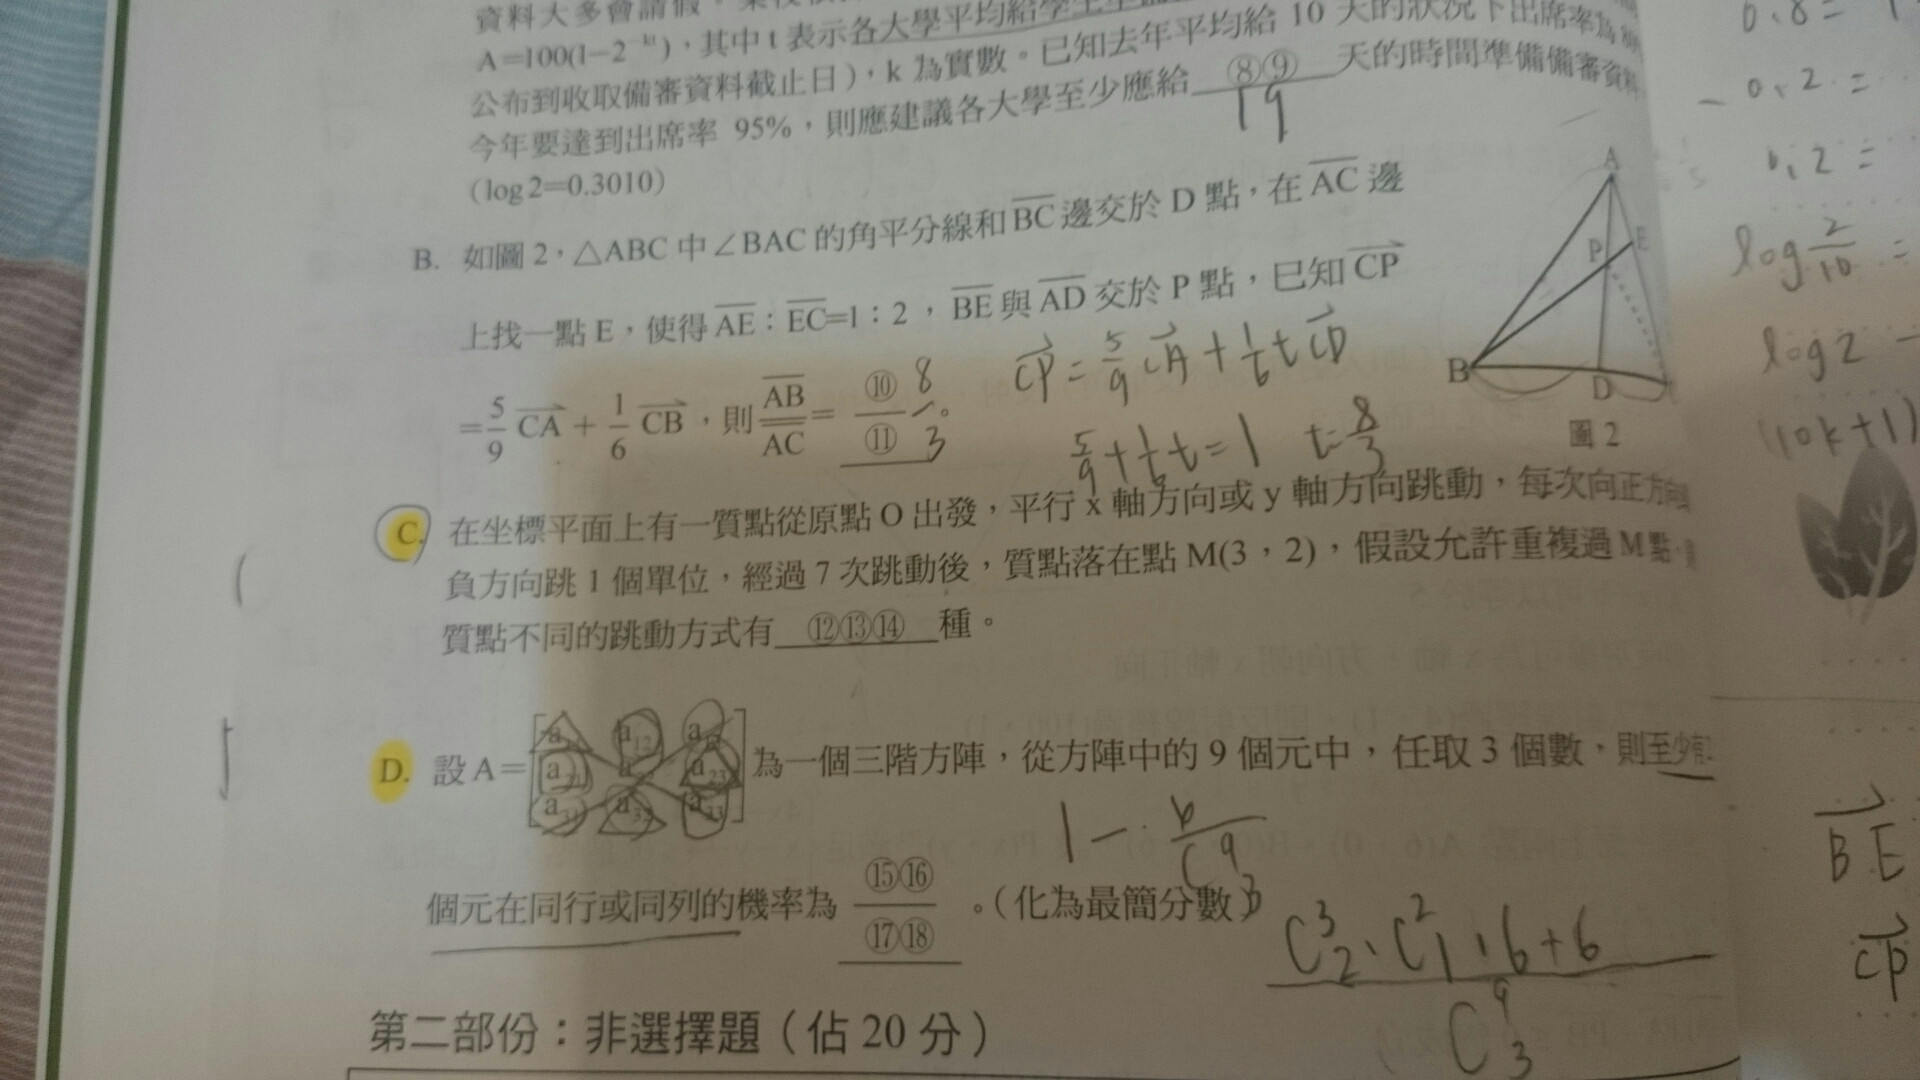 資料大多會請假。
A=100(1-2^{-kt})，其中 t 表示各大學平均給學生準備
公布到收取備審資料截止日)，k 為實數。已知去年平均給 10 天的狀況下出席率為
今年要達到出席率 95%，則應建議各大學至少應給 ⑧⑨ 天的時間準備備審資料
19
(log2=0.3010)
B. 如圖 2，△ABC 中∠BAC 的角平分線和 BC 邊交於 D 點，在 AC 邊
上找一點 E，使得 AE：EC=1：2，BE 與 AD 交於 P 點，已知 CP
=5/9 CA + 1/6 CB，則 AB/AC = ⑩/⑪。
8
3
CP = 5/9 CA + 1/6 t CD
5/9 + 1/6 t = 1 t=8/3
A
P
E
B
D
圖 2
C. 在坐標平面上有一質點從原點 O 出發，平行 x 軸方向或 y 軸方向跳動，每次向正方向
負方向跳 1 個單位，經過 7 次跳動後，質點落在點 M(3，2)，假設允許重複過 M 點，
質點不同的跳動方式有 ⑫⑬⑭ 種。
D. 設 A= 為一個三階方陣，從方陣中的 9 個元中，任取 3 個數，則至少有
a12
a21 a23
a31 a32 a33
個元在同行或同列的機率為 ⑮⑯/⑰⑱。(化為最簡分數)
1 - 6/C^9_3
C^3_2 · C^2_1 · 6+6
C^9_3
第二部份：非選擇題（佔 20 分）
0.8=
0.2=
0.2=
log 2/10 =
log2 -
(10k+1)
BE
CP